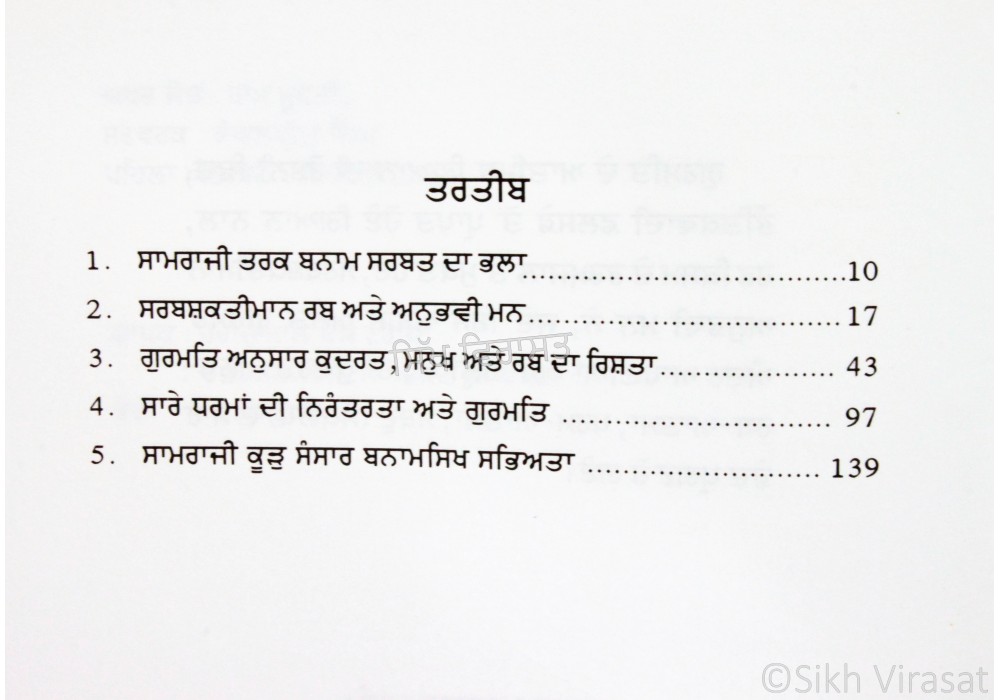 ਤਰਤੀਬ
1. ਸਾਮਰਾਜੀ ਤਰਕ ਬਨਾਮ ਸਰਬਤ ਦਾ ਭਲਾ.......................................10
2. ਸਰਬਸ਼ਕਤੀਮਾਨ ਰਬ ਅਤੇ ਅਨੁਭਵੀ ਮਨ....................................... 17
3. ਗੁਰਮਤਿ ਅਨੁਸਾਰ ਕੁਦਰਤ, ਮਨੁਖ ਅਤੇ ਰਬ ਦਾ ਰਿਸ਼ਤਾ...................... 43
ਸਿੱਖ ਵਿਰਾਸਤ
4. ਸਾਰੇ ਧਰਮਾਂ ਦੀ ਨਿਰੰਤਰਤਾ ਅਤੇ ਗੁਰਮਤਿ .................................. 97
5. ਸਾਮਰਾਜੀ ਕੂੜੁ ਸੰਸਾਰ ਬਨਾਮਸਿਖ ਸਭਿਅਤਾ .............................. 139
©Sikh Virasat